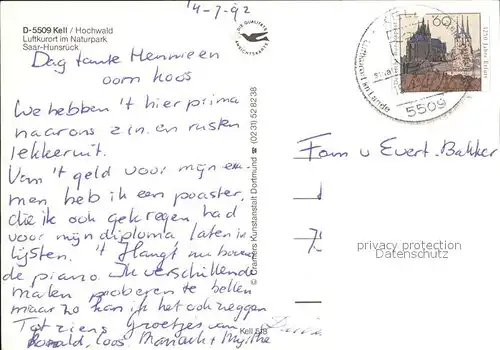 4-7-92
D-5509 Kell / Hochwald
Luftkurort im Naturpark
Saar-Hunsrück
DIE QUALITÄTS
ANSICHTSKARTE
60
1250 Jahre Erfurt
5509
Dag tante Hennieen
oom Koos
We hebben 't hier prima
naar ons zin en rusten
lekker uit.
Van 't geld voor mijn exa-
men heb ik een poaster,
die ik ook gekregen had
voor mijn diploma laten in
lijsten. 't Hangt nu boven
de piano. Ik verschillende
malen proberen te bellen
maar zo kan ik het ook zeggen
Tot ziens Groetjes van
Ronald, Loos, Mariach + Myrthe
© Cramers Kunstanstalt Dortmund ☎ (0231) 528238
Kell 5/8
Fam v Evert-Bakker
privacy protection
Datenschutz